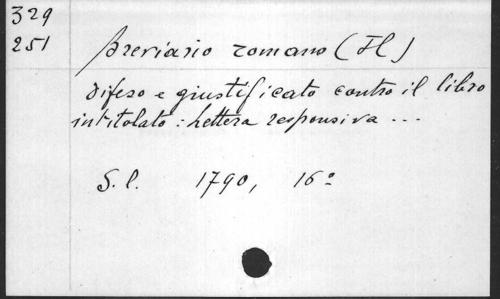 329
251
Breviario romano (Il)
difeso e giustificato contro il libro
intitolato: Lettera responsiva ...
S. l. 1790, 16º